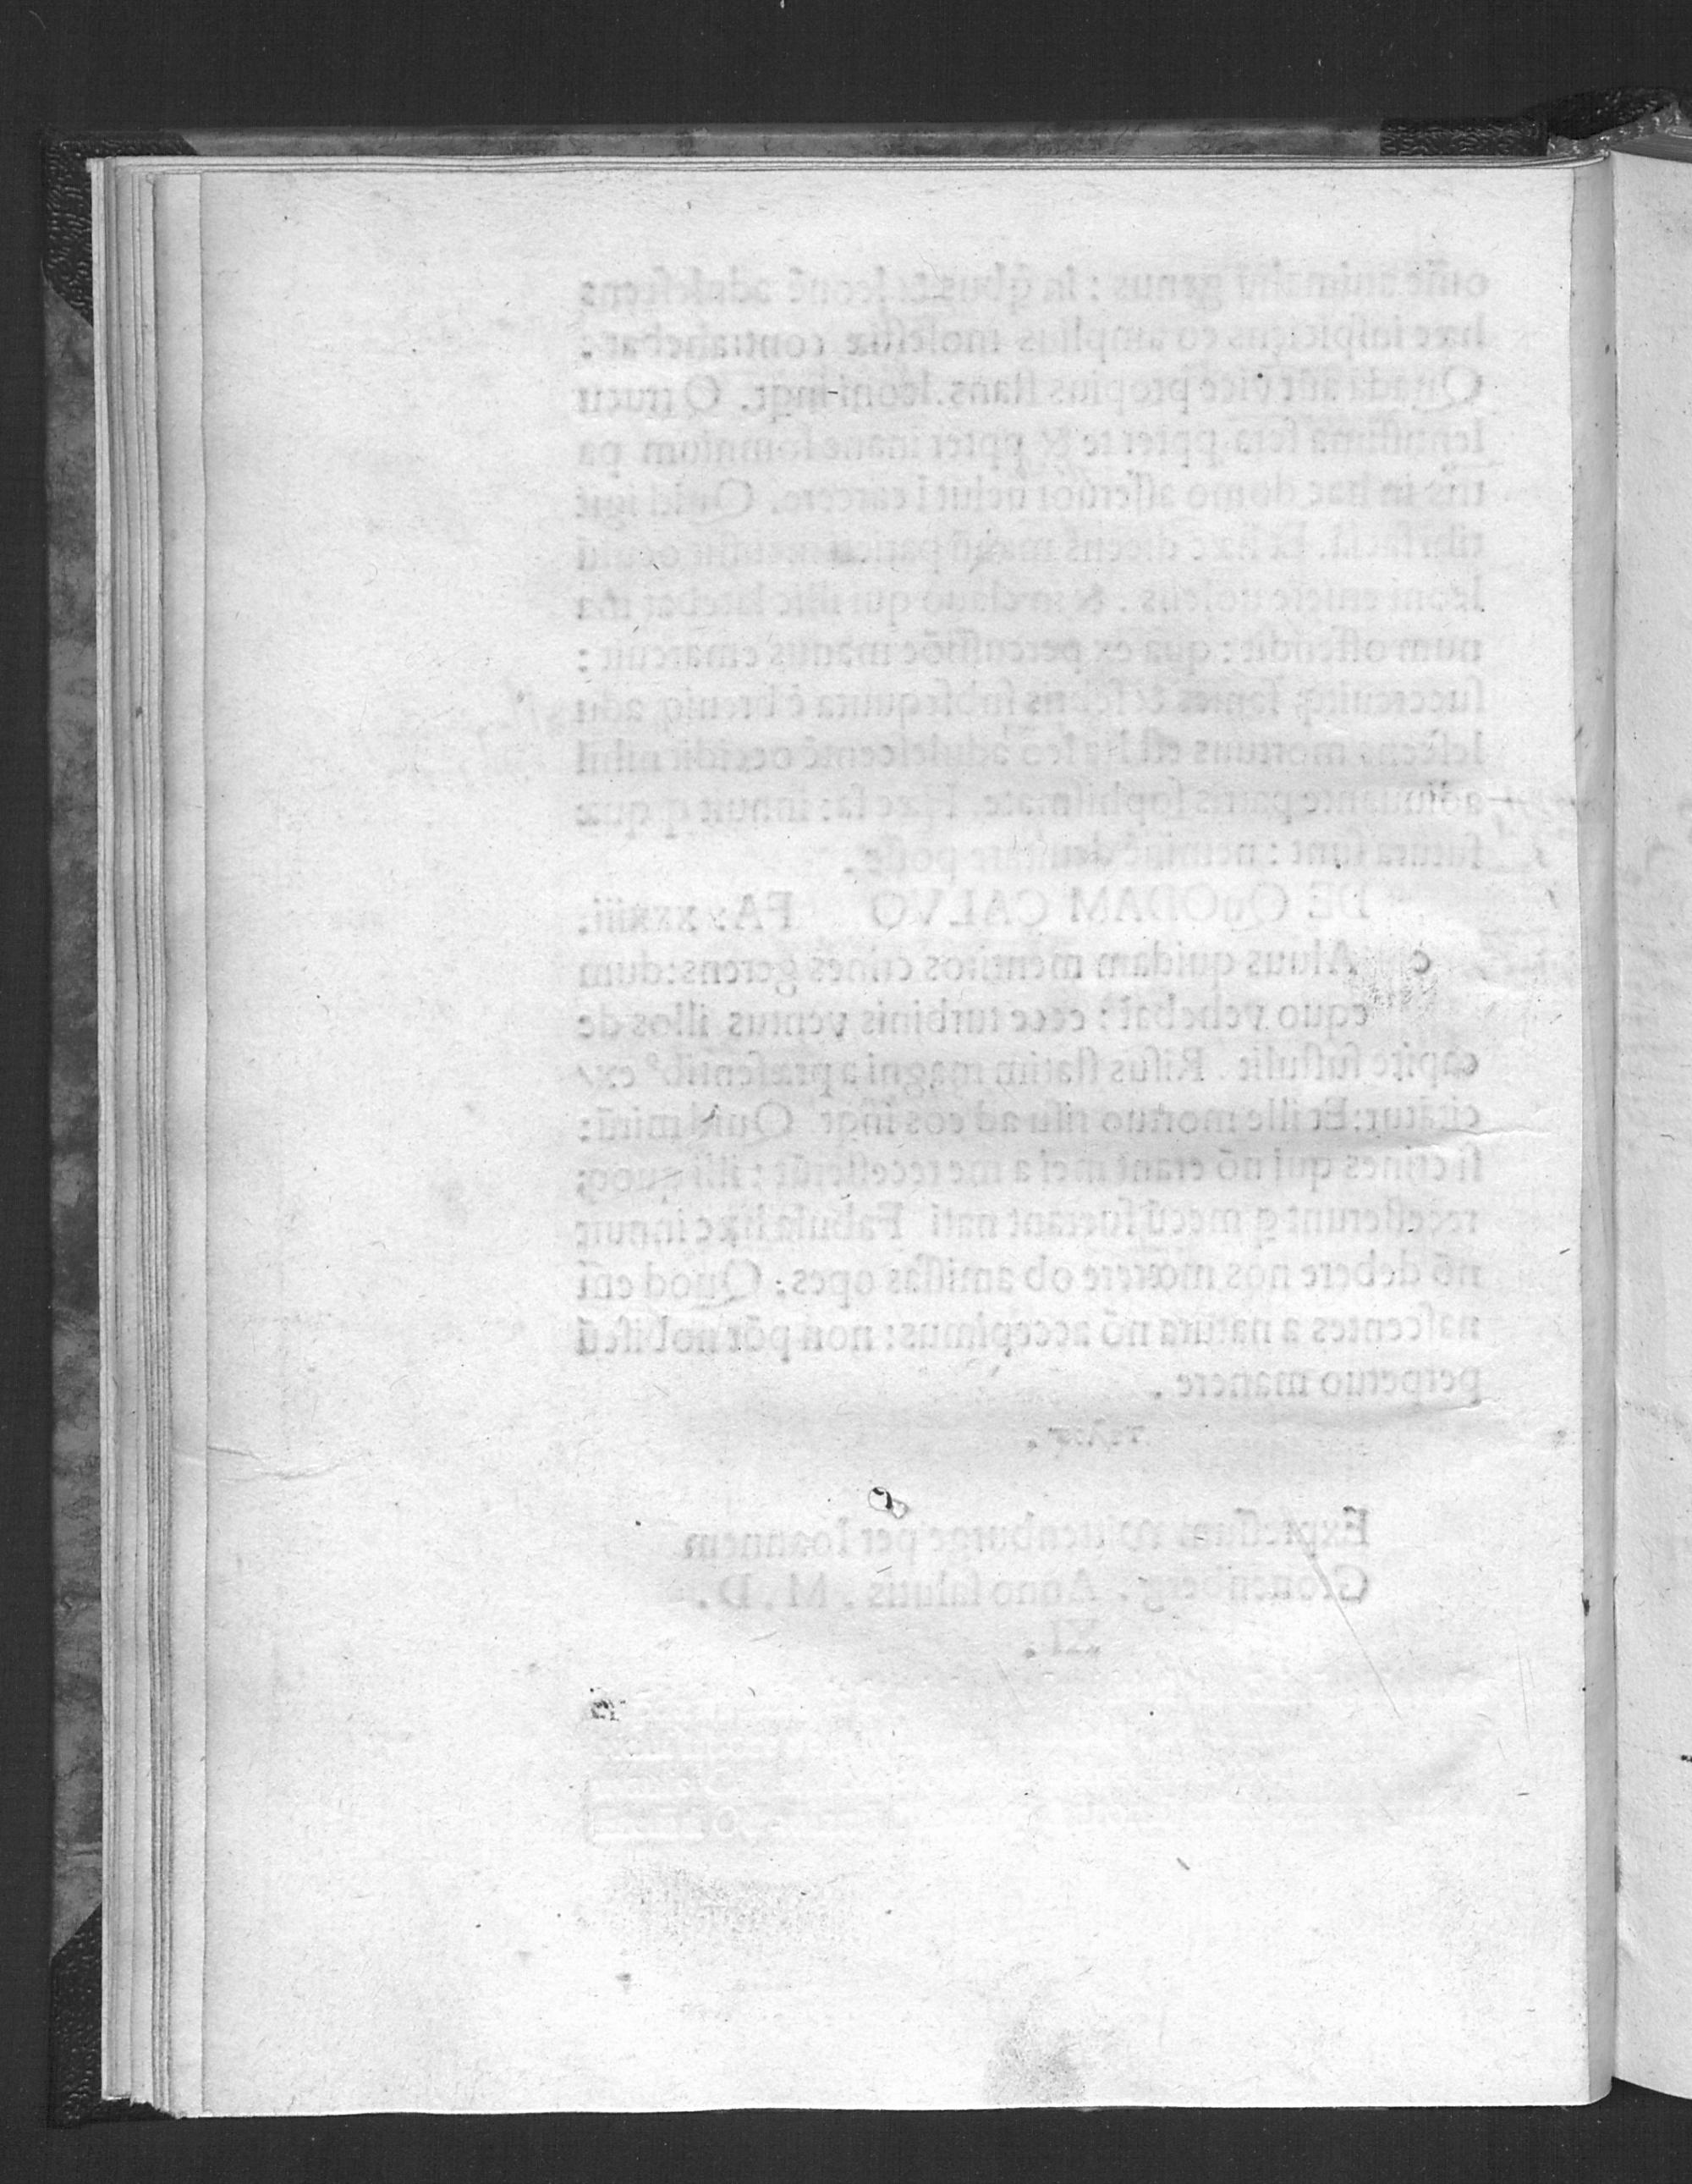 oīne animaliū genus: In qbus et leonē adolescens
hæc inspiciens eo amplius molestiæ contrahebat:
Quadā aūt vice propius stans leoni inqt. O trucu
lentissima fera ppter te & ppter inane somnium pa
tris in hac domo asseruor uelut i carcere. Quid igit
tibi faciā. Et hæc dicens manū parieti incussit oculū
leoni eruere uolens. & in clauo qui illic latebat ma
num offendit: qua ex percussiōe manus emarcuit:
succreuitq; sanies & febris subsequuta ē breuiq; adu
lescens mortuus est Ita leo adulescentē occidit nihil
adiuuante patris sophismate. Hæc fa: innuit q quæ
futura sunt: neminē deuitare posse.
DE QuODAM CALVO FA: xxxiii.
c Aluus quidam mentitos crines gerens: dum
equo vehebat: ecce turbinis ventus illos de
capite sustulit. Risus statim magni a præsentib⁹ ex/
citātur: Et ille mortuo risu ad eos inqt Quid mirū:
si crines qui nō erant mei a me recesserūt: illi quoq;
recesserunt q mecū fuerant nati Fabula hæc innuit
nō debere nos mœrere ob amissas opes: Quod eni
nascentes a natura nō accepimus: non pōt nobiscū
perpetuo manere.
τελος.
Expressum wittenburge per Ioannem
Gronenberg. Anno salutis. M. D.
XI.